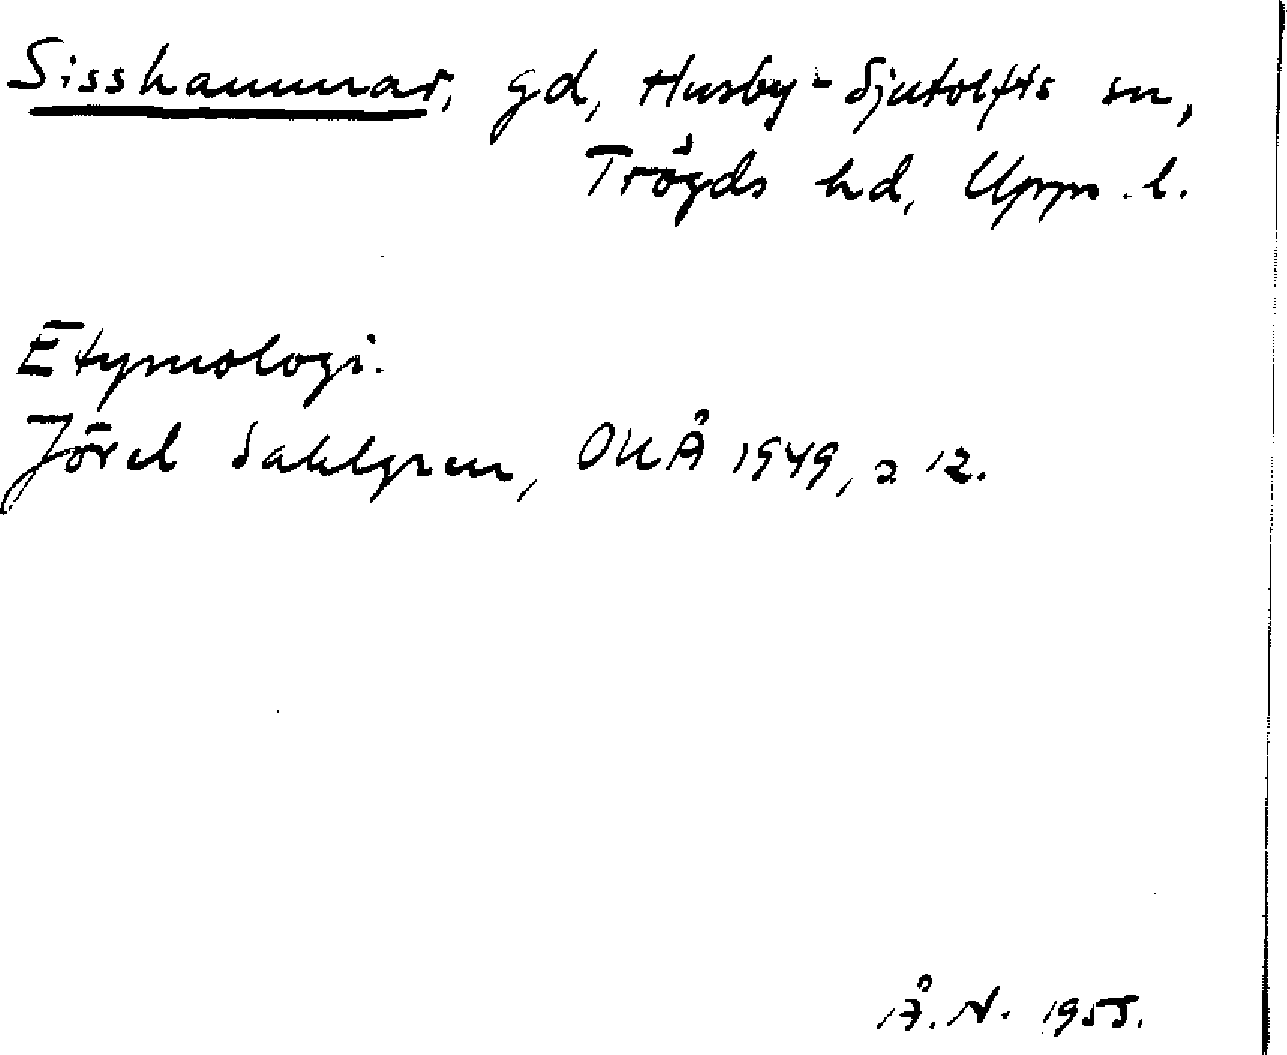 Sisshammar, gd, Husby-Sjutolfts sn,
Trögds hd, Upps. l.
Etymologi.
Jöran Sahlgren, OUÅ 1949, s 12.
Å. N. 1955.